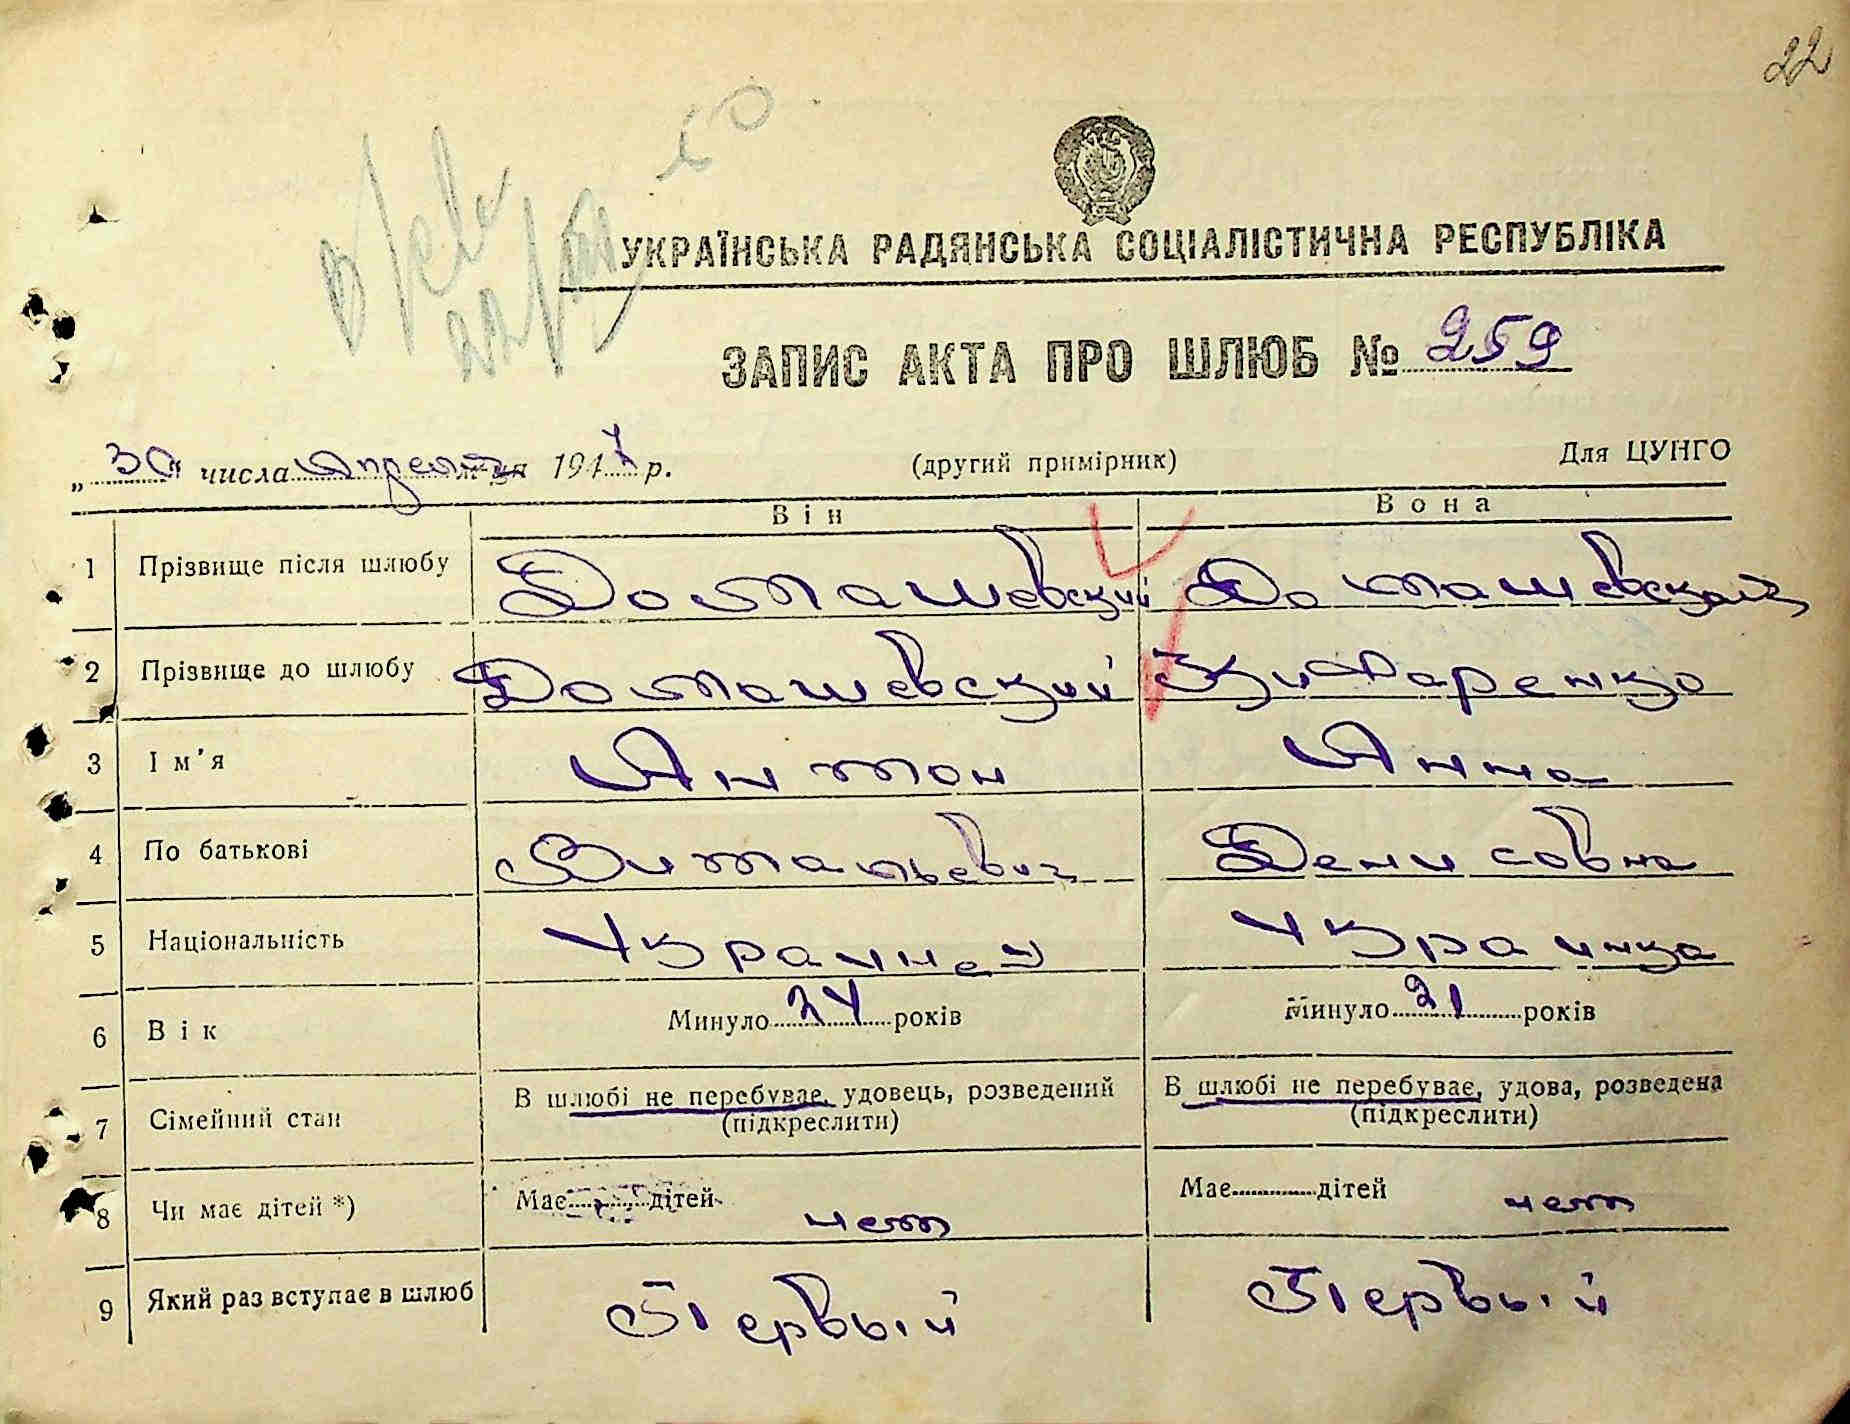 22
УКРАЇНСЬКА РАДЯНСЬКА СОЦІАЛІСТИЧНА РЕСПУБЛІКА
ЗАПИС АКТА ПРО ШЛЮБ № 259
„ 30 " числа апреля м-ця 1947 р. (другий примірник) Для ЦУНГО
Він Вона
1 Прізвище після шлюбу Домашевский Домашевская
2 Прізвище до шлюбу Домашевский
3 Ім'я Антон Анна
4 По батькові Витальевич Денисовна
5 Національність Украинец Украинка
6 Вік Минуло 24 років Минуло 21 років
7 Сімейний стан В шлюбі не перебуває, удовець, розведений В шлюбі не перебуває, удова, розведена
(підкреслити) (підкреслити)
8 Чи має дітей *) Має дітей нет Має дітей нет
9 Який раз вступає в шлюб Первый Первый